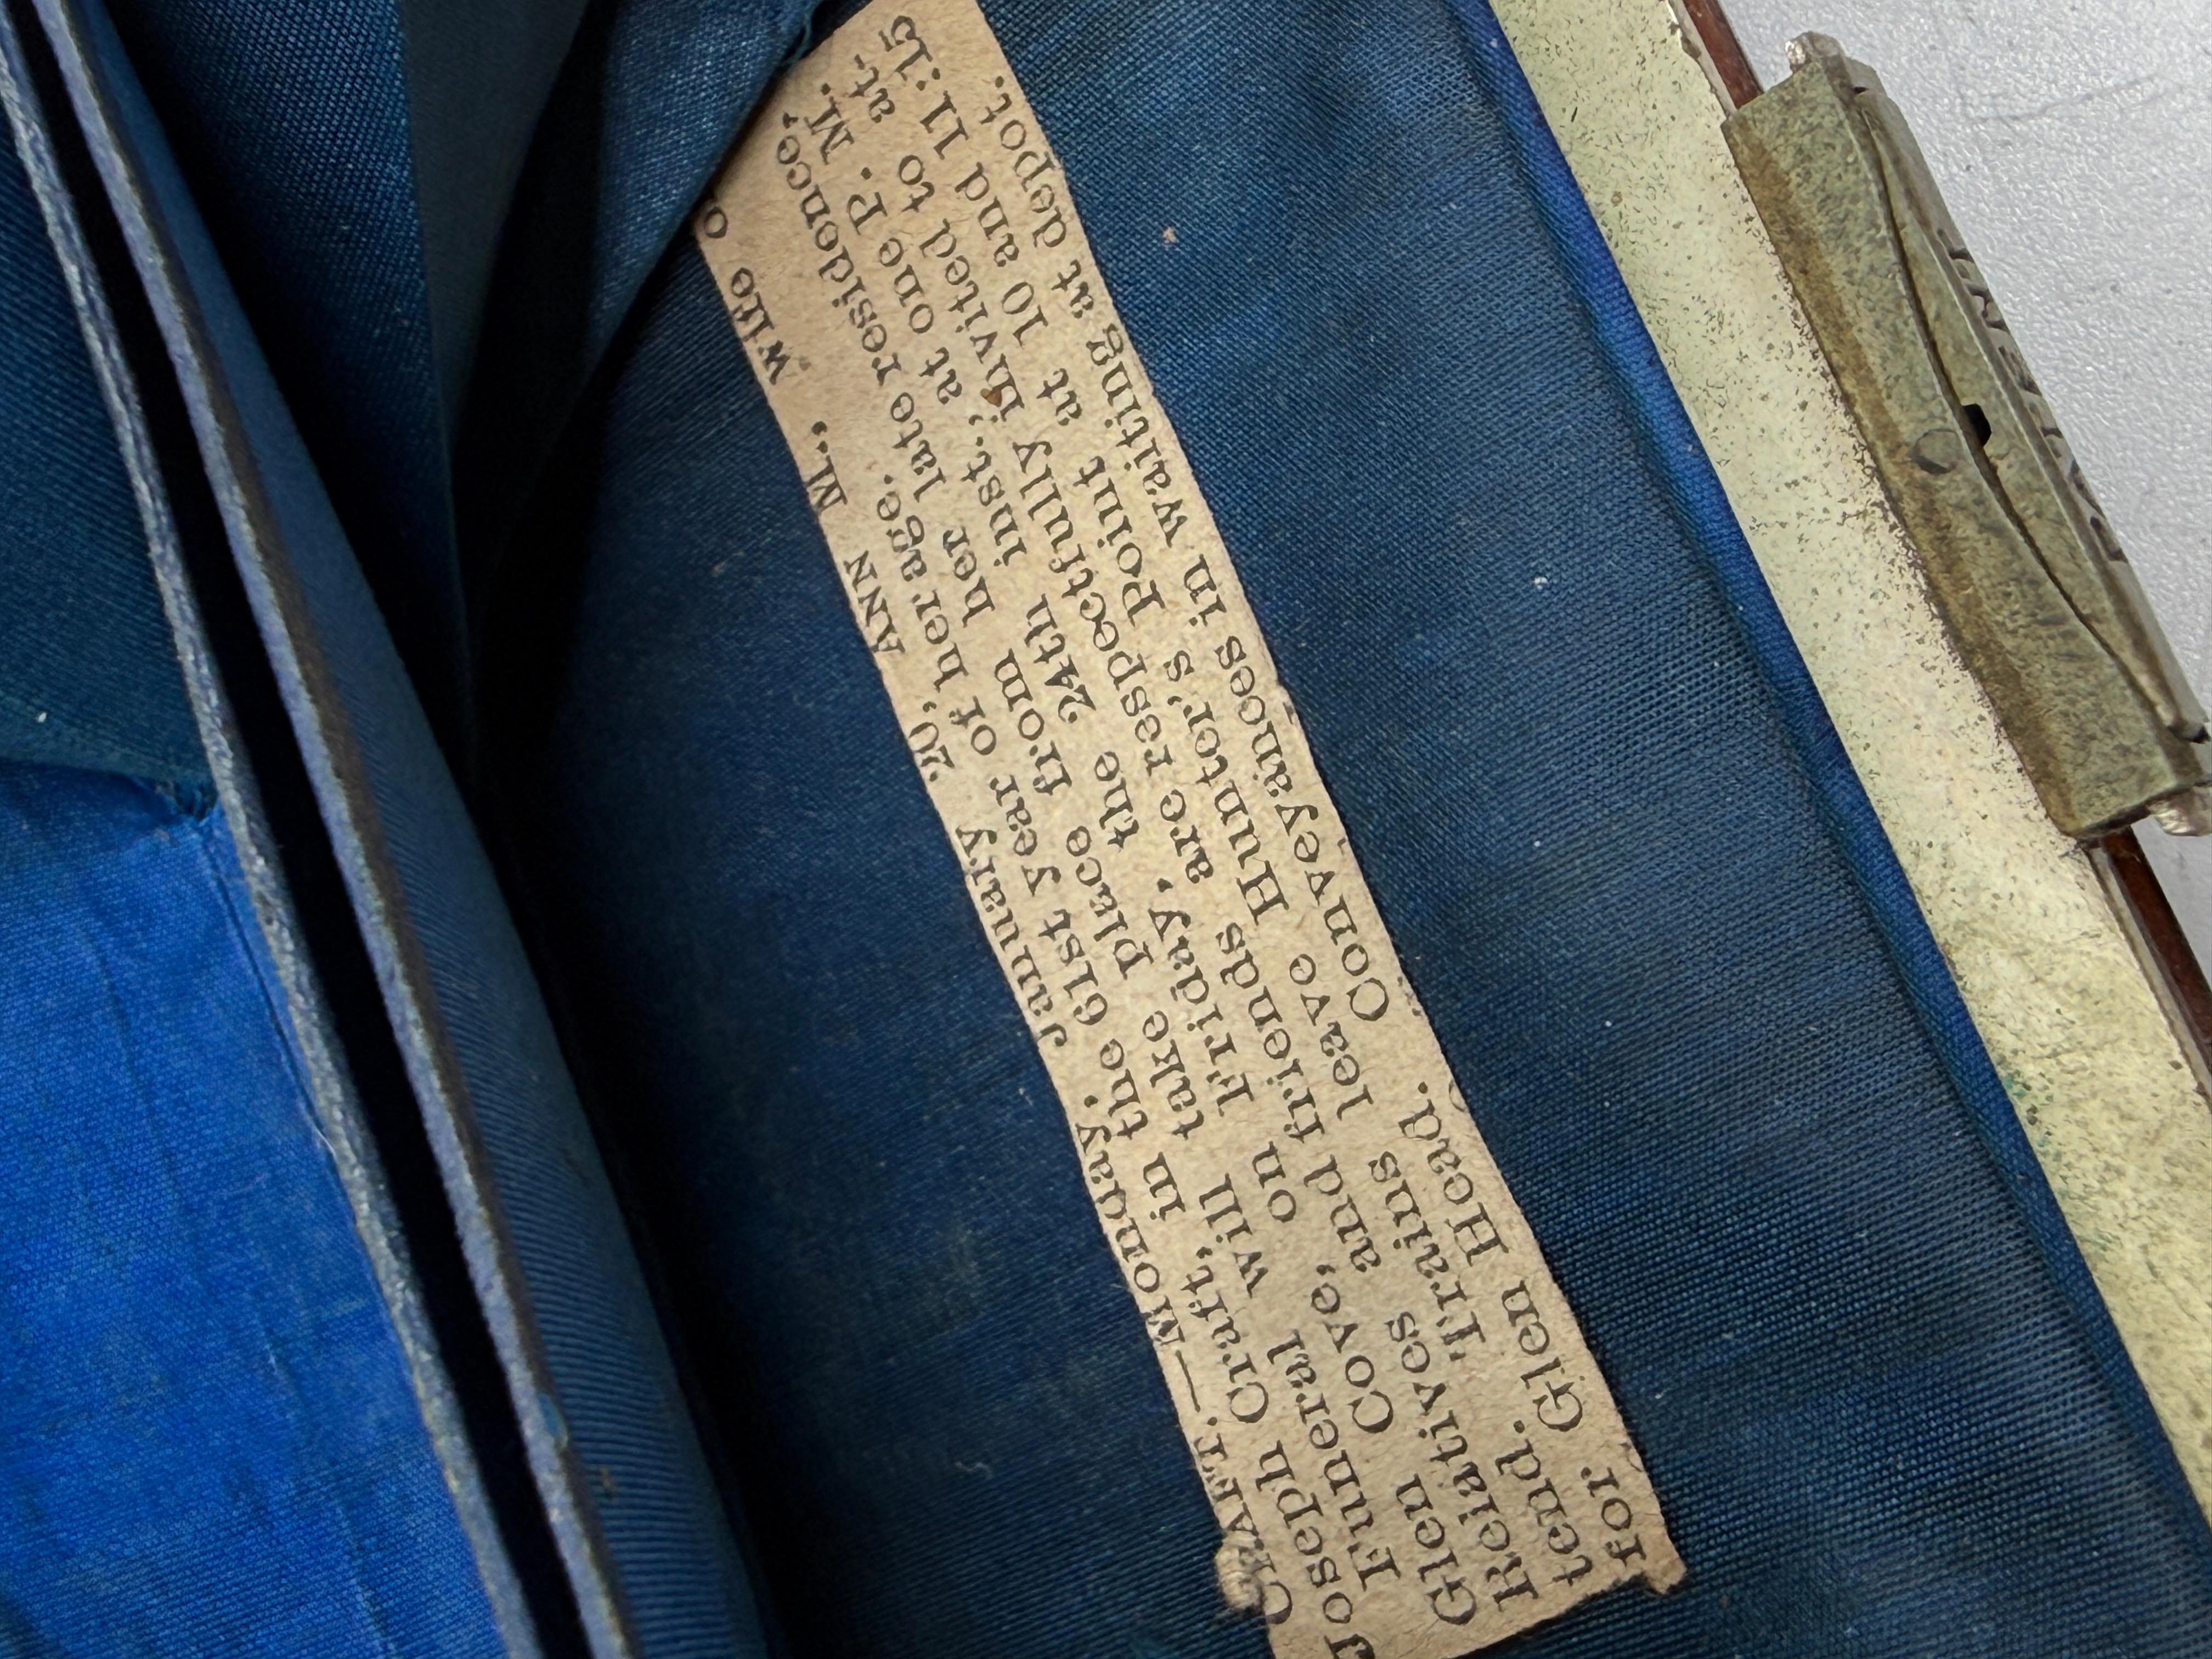 CRAFT.—Monday, January 20, ANN M., wife o
Joseph Craft, in the 61st year of her age.
Funeral will take place from her late residence,
Glen Cove, on Friday, the 24th inst., at one P. M.
Relatives and friends are respectfully invited to at-
tend. Trains leave Hunter's Point at 10 and 11:15
for Glen Head. Conveyances in waiting at depot.